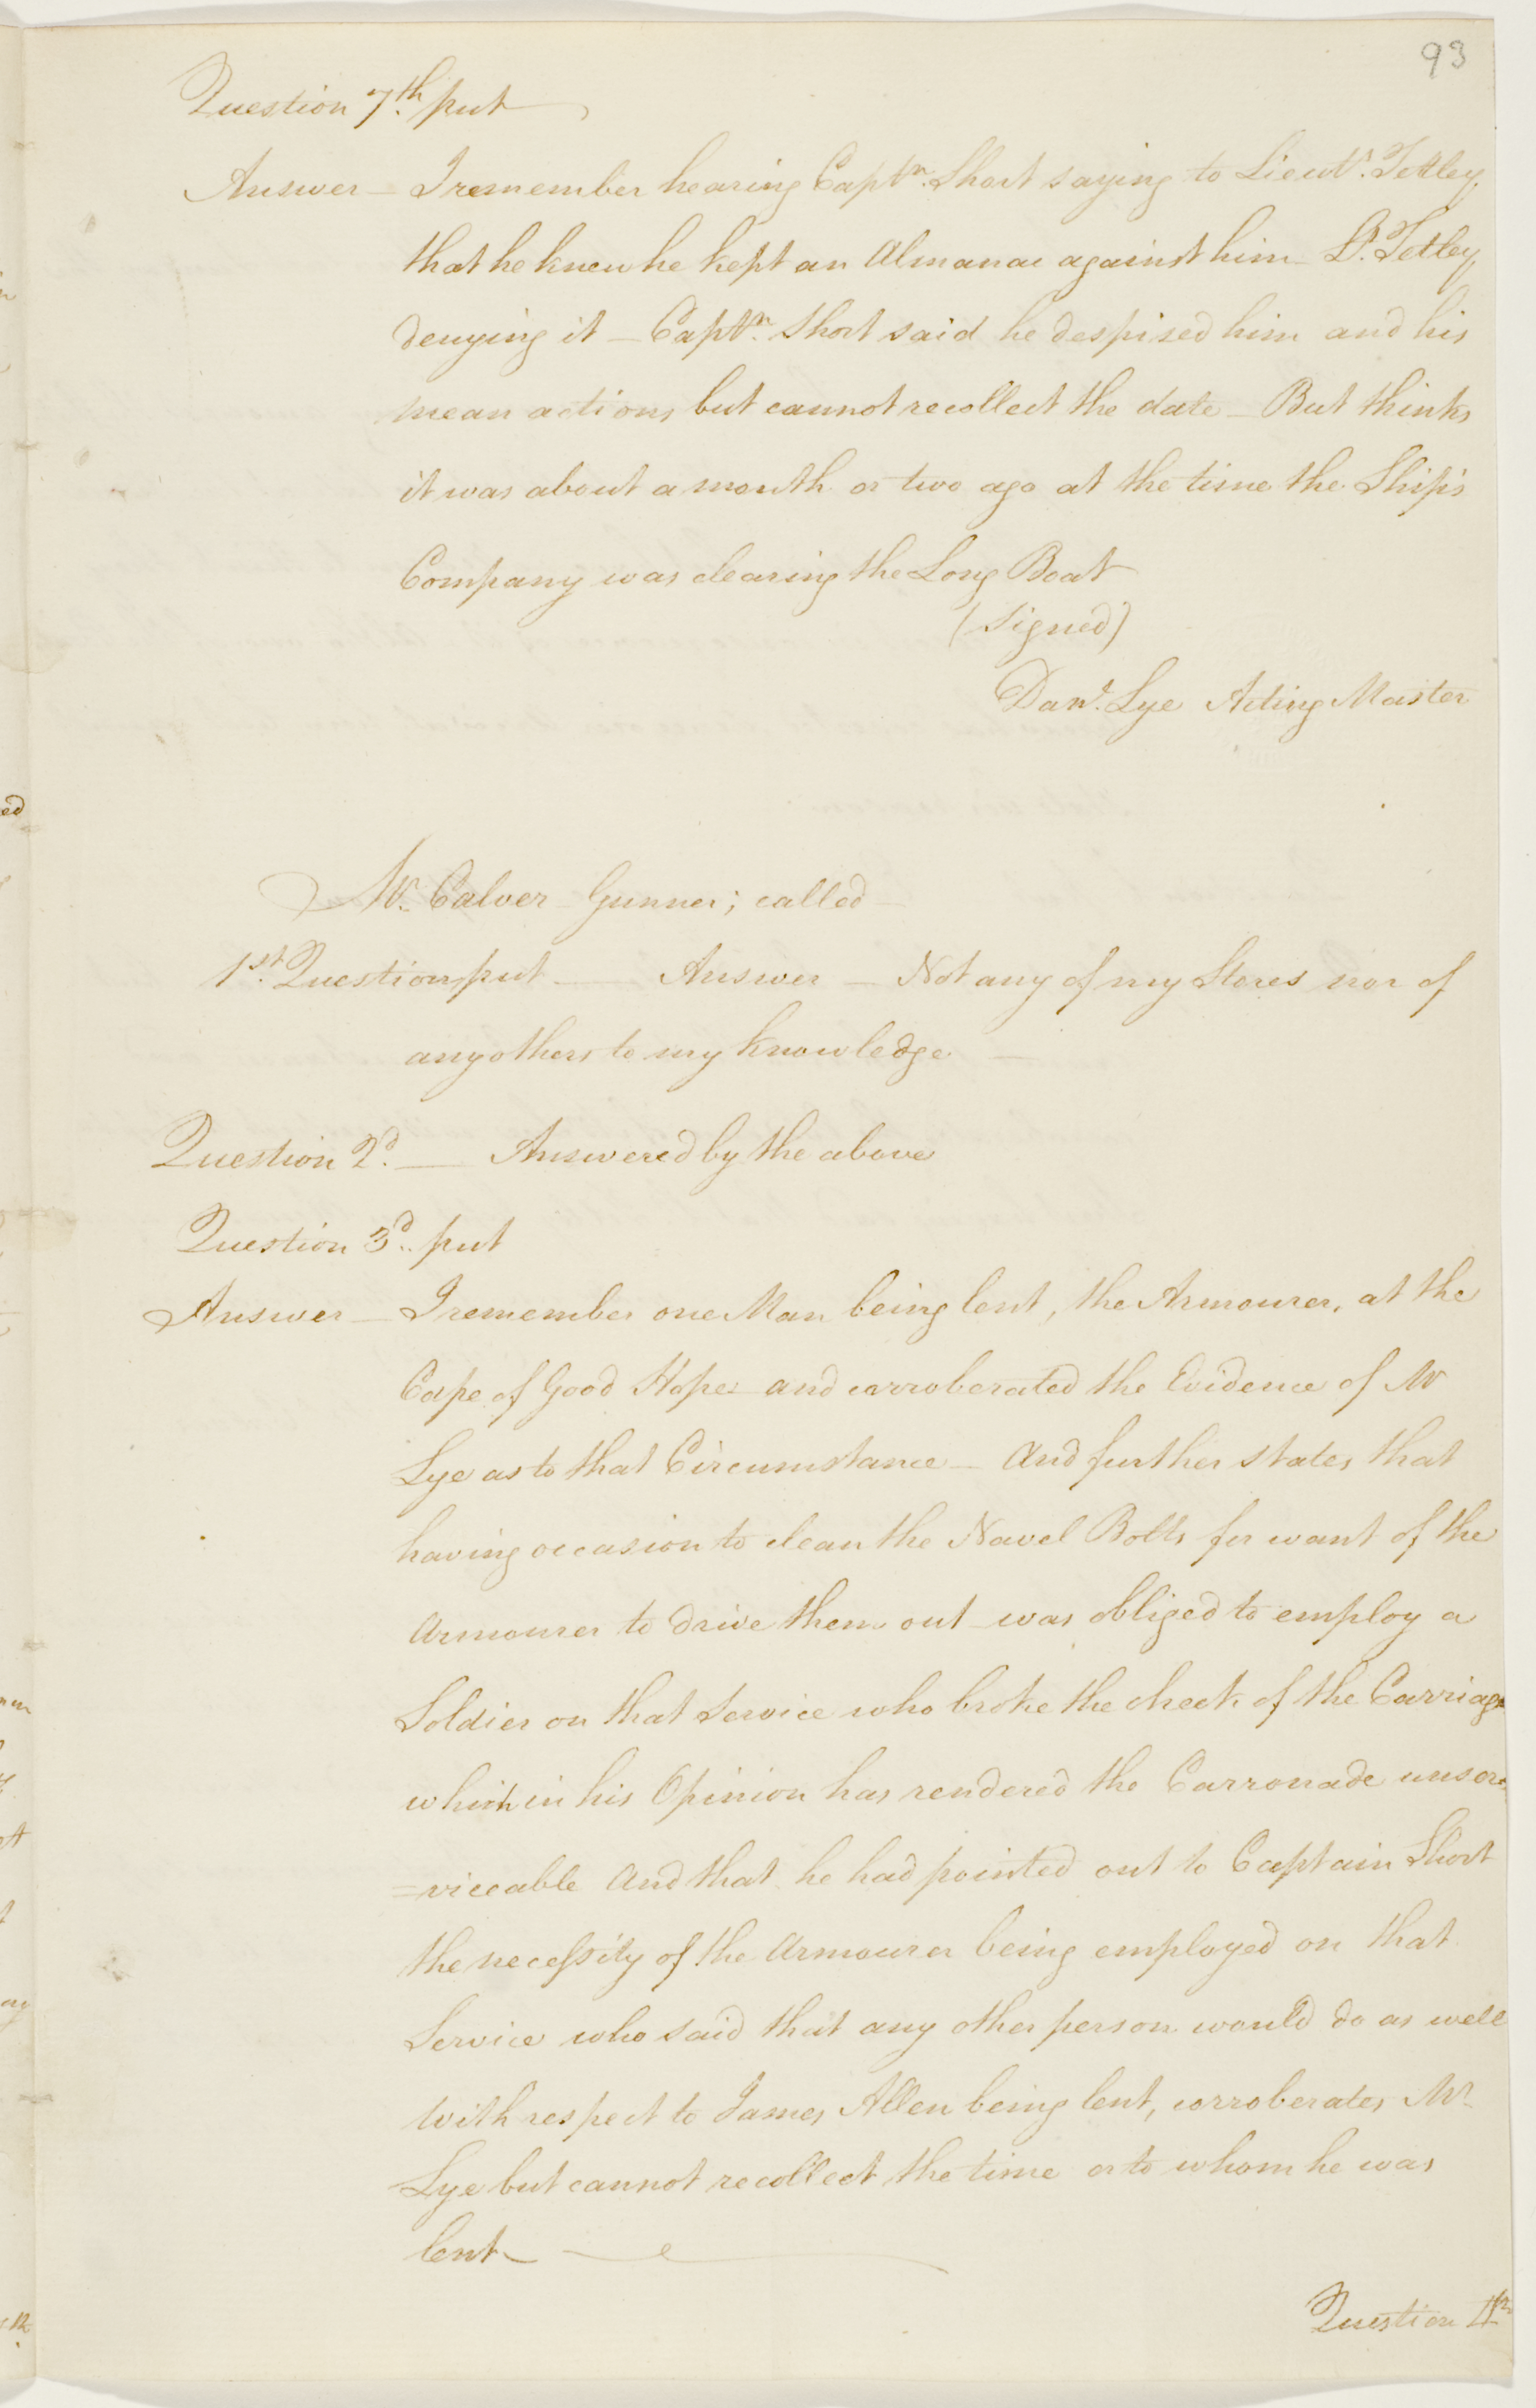 93
Question 7.th put
Answer — I remember hearing Captn. Short saying to Lieut. Tetley
that he knew he kept an Almanac against him — Lt. Tetley
denying it — Captn. Short said he despised him and his
mean actions but cannot recollect the date — But thinks
it was about a month or two ago at the time the Ship's
Company was clearing the Long Boat
(Signed)
Danl. Lye Acting Master
Mr. Calver Gunner; called —
1st. Question put — Answer — Not any of my Stores nor of
any others to my knowledge —
Question 2d. — Answered by the above
Question 3d. put
Answer — I remember one Man being lent, the Armourer, at the
Cape of Good Hope — and corroberated the Evidence of Mr
Lye as to that Circumstance — And further states that
having occasion to clean the Navel Bolts for want of the
Armourer to drive them out — was obliged to employ a
Soldier on that Service who broke the cheek of the Carriage
which in his Opinion has rendered the Carronade unser
=viceable And that he had pointed out to Captain Short
the necessity of the Armourer being employed on that
Service who said that any other person would do as well
With respect to James Allen being lent, corroberates Mr.
Lye but cannot recollect the time or to whom he was
lent —
Question 4th